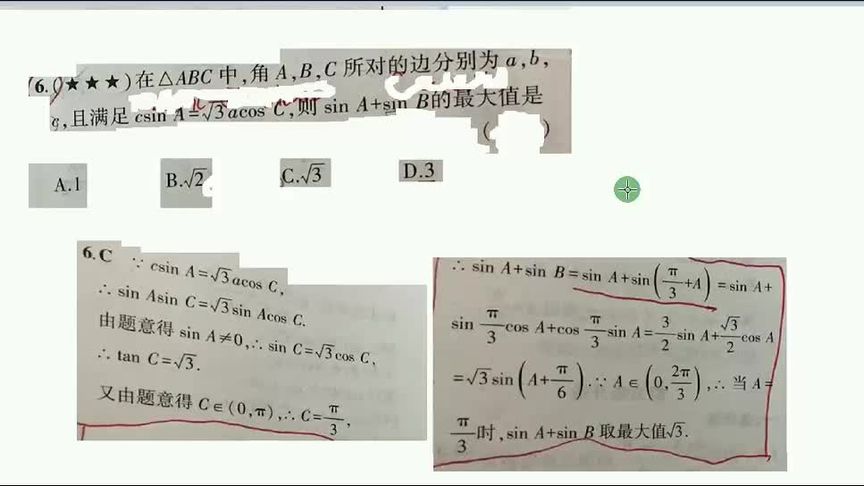 6.(★★★)在△ABC中,角A,B,C所对的边分别为a,b,
c,且满足csin A=√3acos C,则sin A+sin B的最大值是
( )
A.1 B.√2 C.√3 D.3
6.C ∵ csin A=√3acos C,
∴ sin Asin C=√3sin Acos C.
由题意得 sin A≠0,∴ sin C=√3cos C,
∴ tan C=√3.
又由题意得 C∈(0,π),∴ C=π/3,
∴ sin A+sin B=sin A+sin(π/3+A)=sin A+
sin π/3 cos A+cos π/3 sin A=3/2 sin A+√3/2 cos A
=√3sin(A+π/6).∵ A∈(0,2π/3),∴ 当A=
π/3时,sin A+sin B取最大值√3.